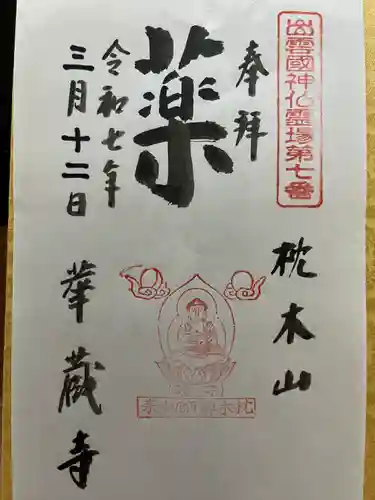 出雲國神仏霊場第七番
奉拝
枕木山
薬
令和七年
三月十二日
華蔵寺